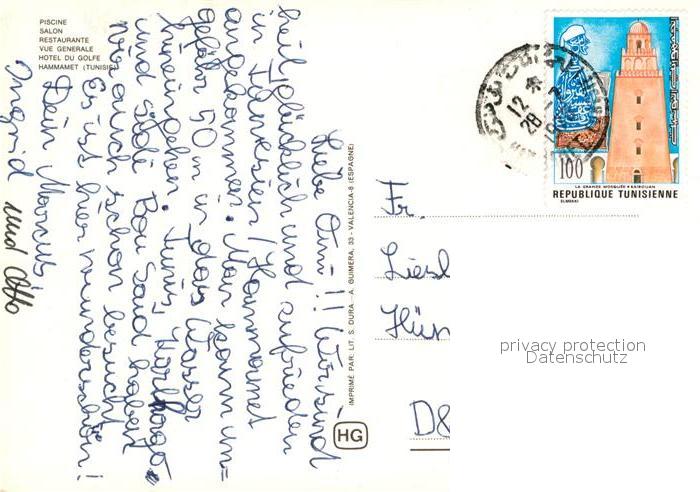 PISCINE
SALON
RESTAURANTE
VUE GENERALE
HOTEL DU GOLFE
HAMMAMET (TUNISIE)
Liebe Omi!! Wir sind
heil, glücklich und zufrieden
in Tunesien / Hammamet
angekommen. Man kann un=
gefähr 50 m in das Wasser
hineingehen. Tunis, Karthago
und Sidi Bou Said haben
wir auch schon besucht.
Es ist hier wunderschön!
Dein Marcus,
Ingrid und Otto
IMPRIMÉ PAR: LIT. S. DURA - A. GUIMERA, 33 - VALENCIA-8 (ESPAGNE)
HG
100
LA GRANDE MOSQUÉE KAIROUAN
REPUBLIQUE TUNISIENNE
12
28
Fr.
Liesl
Hün
D8
privacy protection
Datenschutz